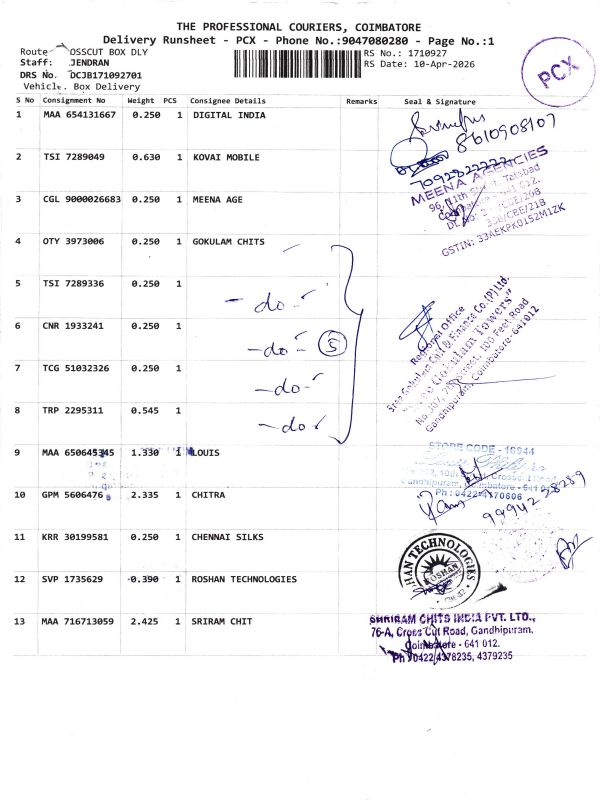 THE PROFESSIONAL COURIERS, COIMBATORE
Delivery Runsheet - PCX - Phone No.:9047080280 - Page No.:1
Route OSSCUT BOX DLY RS No.: 1710927
Staff: JENDRAN RS Date: 10-Apr-2026
DRS No. DCJB171092701
Vehicle. Box Delivery
PCX
S No Consignment No Weight PCS Consignee Details Remarks Seal & Signature
1 MAA 654131667 0.250 1 DIGITAL INDIA
8610908107
2 TSI 7289049 0.630 1 KOVAI MOBILE
7092822222
3 CGL 9000026683 0.250 1 MEENA AGE
MEENA AGENCIES
96, 11th Street, Tatabad
GSTIN: 33AEKPK0152M1ZK
4 OTY 3973006 0.250 1 GOKULAM CHITS
5 TSI 7289336 0.250 1 - do -
6 CNR 1933241 0.250 1 - do - 5
7 TCG 51032326 0.250 1 - do -
8 TRP 2295311 0.545 1 - do -
Regional Office
Sree Gokulam Chit & Finance Co.(P) Ltd.
"Sree Gokulam Towers"
Gandhipuram, Coimbatore-641012
9 MAA 650645345 1.330 1 LOUIS
STORE CODE - 16944
Gandhipuram, Coimbatore - 641
Ph : 0422-4370606
10 GPM 5606476 2.335 1 CHITRA
9994258289
11 KRR 30199581 0.250 1 CHENNAI SILKS
12 SVP 1735629 0.390 1 ROSHAN TECHNOLOGIES
HAN TECHNOLOGIES
ROSHAN
13 MAA 716713059 2.425 1 SRIRAM CHIT
SHRIRAM CHITS INDIA PVT. LTD.,
76-A, Cross Cut Road, Gandhipuram,
Coimbatore - 641 012.
Ph : 0422 4378235, 4379235